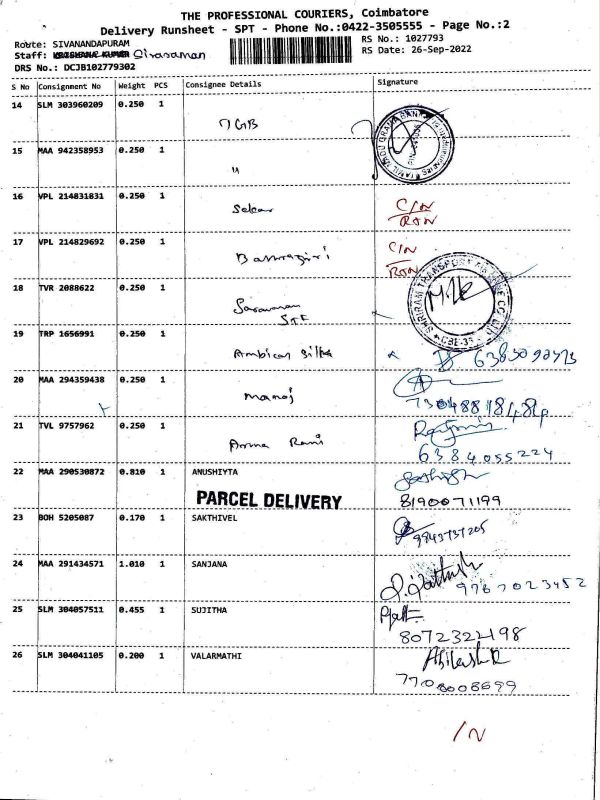 THE PROFESSIONAL COURIERS, Coimbatore
Delivery Runsheet - SPT - Phone No.:0422-3505555 - Page No.:2
Route: SIVANANDAPURAM
RS No.: 1027793
Staff: KRISHANA KUMAR Sivasaman
RS Date: 26-Sep-2022
DRS No.: DCJB102779302
S No Consignment No Weight PCS Consignee Details Signature
14 SLM 303960209 0.250 1
TGB
15 MAA 942358953 0.250 1
"
16 VPL 214831831 0.250 1
Sekar C/N
RTN
17 VPL 214829692 0.250 1
C/N
RTN
18 TVR 2088622 0.250 1
Saravanan
STF
SHRIRAM TRANSPORT FINANCE CO LTD
CBE-35
19 TRP 1656991 0.250 1
Ambicas Silks
20 MAA 294359438 0.250 1
Manoj
21 TVL 9757962 0.250 1
Amma Rani
6384055224
22 MAA 290530872 0.810 1 ANUSHIYTA
PARCEL DELIVERY 8190071199
23 BOH 5205087 0.170 1 SAKTHIVEL
9943737205
24 MAA 291434571 1.010 1 SANJANA
9767023452
25 SLM 304057511 0.455 1 SUJITHA
8072322198
26 SLM 304041105 0.200 1 VALARMATHI
Abilash R
7708008699
/N